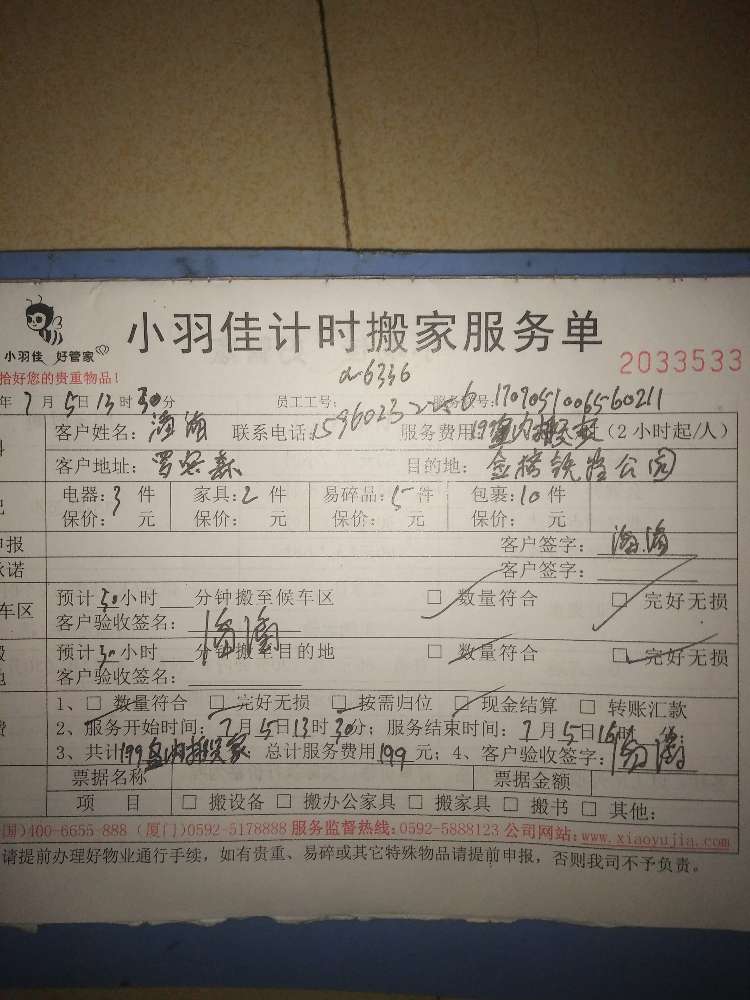 小羽佳 好管家
小羽佳计时搬家服务单
2033533
拾好您的贵重物品!
a-6336
年7月5日13时30分 员工工号: 服务单号:1707051006560211
客户姓名: 联系电话: 服务费用:199 室内搬 (2小时起/人)
客户地址: 目的地: 金榜铁路公园
电器:3件 家具:2件 易碎品:5件 包裹:10件
保价: 元 保价: 元 保价: 元 保价: 元
申报 客户签字:
承诺 客户签字:
车区 预计30小时 分钟搬至候车区 □ 数量符合 □ 完好无损
客户验收签名:
预计30小时 分钟搬至目的地 □ 数量符合 □ 完好无损
客户验收签名:
1、□ 数量符合 □ 完好无损 □ 按需归位 □ 现金结算 □ 转账汇款
2、服务开始时间:7月5日13时30分;服务结束时间:7月5日16时 分;
3、共计199室内搬家 总计服务费用199元;4、客户验收签字:
票据名称 票据金额
项 目 □ 搬设备 □ 搬办公家具 □ 搬家具 □ 搬书 □ 其他:
国)400-6655-888 (厦门)0592-5178888 服务监督热线:0592-5888123 公司网站:www.xiaoyujia.com
请提前办理好物业通行手续,如有贵重、易碎或其它特殊物品请提前申报,否则我司不予负责。